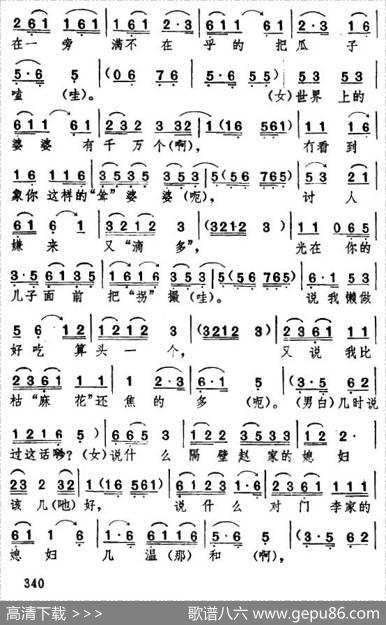 2 6 1 6 1 | 1 6 1 1 6 1 | 1 6 1 2·3 | 2 1 6 6 1 | 2·3 1 6
在一 旁 满不 在 乎的 把瓜 子
5·6 5 | (0 6 7 6 | 5·6 5 5) | 5 3 5 3 | 5 3 5 3
嗑 (哇)。 (女)世界 上的
6 1 1 6 1 | 2 3 2 3 3 2 | 1 (1 6 5 6 1) | 1 1 1 6
婆婆 有千 万个(啊), 冇看到
1 6 1 1 6 | 3 5 3 5 3 5 3 | 5 (5 6 7 6 5) | 5 3 2 1
象你 这样的“耸”婆 婆(呃), 讨人
6 1 6 1 | 3 2 1 2 3 | (3 2 1 2 3) | 1 1 0 6 5
嫌来 又“滴多”, 光在 你的
3·5 6 1 3 5 | 1 6 1 6 3 5 3 | 5 (5 6 7 6 5) | 6·1 5 3
儿子面前 把“拐”撮(哇)。 说我懒做
5 6 1 2 | 1 2 1 2 3 | (3 2 1 2 3) | 2 3 6 1 1 1
好吃 算头一 个, 又说 我比
2 3 6 1 | 1 1 2·3 | 6·1 5 | (3·5 6 2
枯“麻花”还焦的 多 (呃)。 (男白)几时说
1 2 1 6 5) | 6 6 5 3 | 1 2 2 3 5 3 3 | 1 2 2·
过这话啰? (女)说什么 隔壁赵家的媳妇
2 3 2 3 2 | 1 (1 6 5 6 1) | 6 1 2 3 1·6 | 2 3 5 3 5
该几(吔)好, 说什么对门李家的
6 1 1 6 | 1·6 6 1 1 6 | 5·6 5 | (3 5 6 2
媳妇 几温(那)和 (啊),
340
高清下载 >>>
歌谱八六 www.gepu86.com